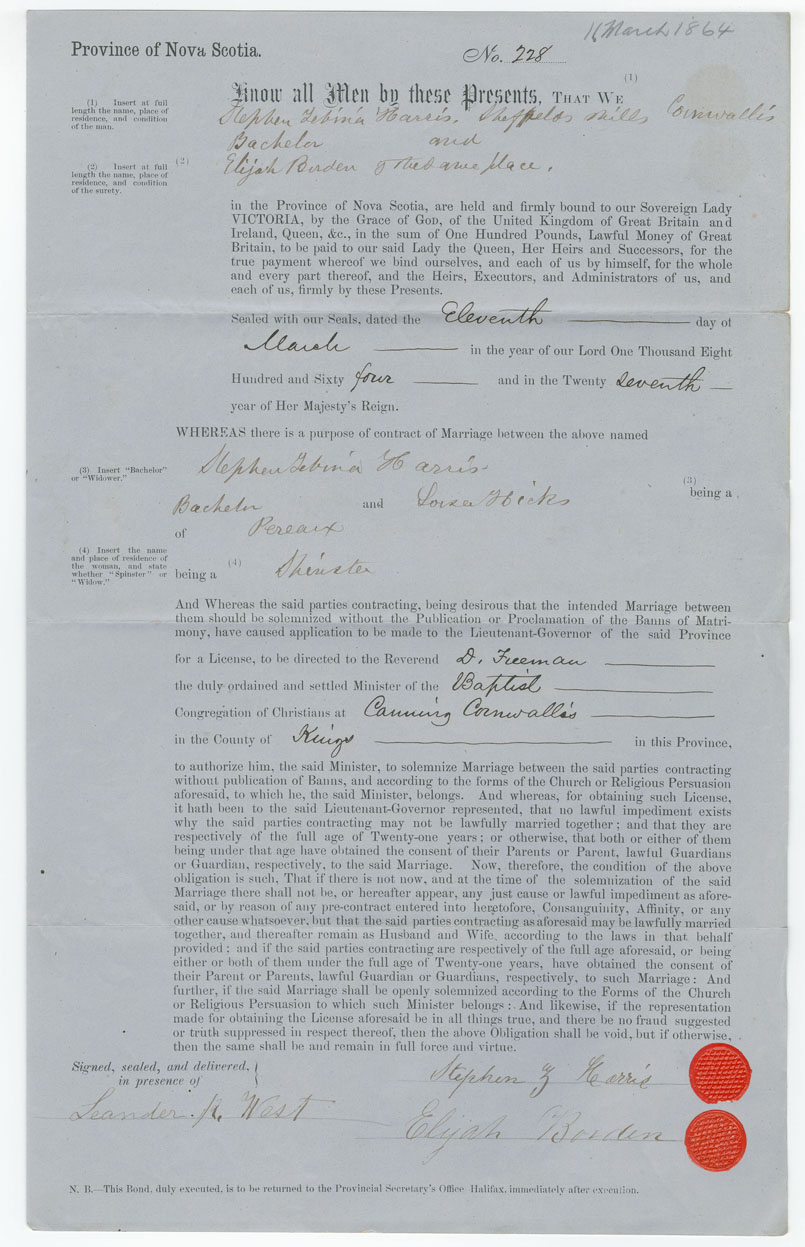 11 March 1864
Province of Nova Scotia.
No. 228
Know all Men by these Presents, THAT WE (1)
(1) Insert at full
length the name, place of
residence, and condition
of the man.
Stephen Zebina Harris. Sheffields Mills Cornwallis
Bachelor and
(2) Elijah Borden of the same place.
(2) Insert at full
length the name, place of
residence, and condition
of the surety.
in the Province of Nova Scotia, are held and firmly bound to our Sovereign Lady
VICTORIA, by the Grace of GOD, of the United Kingdom of Great Britain and
Ireland, Queen, &c., in the sum of One Hundred Pounds, Lawful Money of Great
Britain, to be paid to our said Lady the Queen, Her Heirs and Successors, for the
true payment whereof we bind ourselves, and each of us by himself, for the whole
and every part thereof, and the Heirs, Executors, and Administrators of us, and
each of us, firmly by these Presents.
Sealed with our Seals, dated the Eleventh day of
March in the year of our Lord One Thousand Eight
Hundred and Sixty four and in the Twenty seventh
year of Her Majesty's Reign.
WHEREAS there is a purpose of contract of Marriage between the above named
(3) Insert "Bachelor"
or "Widower."
Stephen Zebina Harris
(3) being a
Bachelor and Louisa Hicks
of Pereaux
(4) Insert the name
and place of residence of
the woman, and state
whether "Spinster" or
"Widow."
being a (4) Spinster
And Whereas the said parties contracting, being desirous that the intended Marriage between
them should be solemnized without the Publication or Proclamation of the Banns of Matri-
mony, have caused application to be made to the Lieutenant-Governor of the said Province
for a License, to be directed to the Reverend D. Freeman
the duly ordained and settled Minister of the Baptist
Congregation of Christians at Canning Cornwallis
in the County of Kings in this Province,
to authorize him, the said Minister, to solemnize Marriage between the said parties contracting
without publication of Banns, and according to the forms of the Church or Religious Persuasion
aforesaid, to which he, the said Minister, belongs. And whereas, for obtaining such License,
it hath been to the said Lieutenant-Governor represented, that no lawful impediment exists
why the said parties contracting may not be lawfully married together; and that they are
respectively of the full age of Twenty-one years; or otherwise, that both or either of them
being under that age have obtained the consent of their Parents or Parent, lawful Guardians
or Guardian, respectively, to the said Marriage. Now, therefore, the condition of the above
obligation is such, That if there is not now, and at the time of the solemnization of the said
Marriage there shall not be, or hereafter appear, any just cause or lawful impediment as afore-
said, or by reason of any pre-contract entered into heretofore, Consanguinity, Affinity, or any
other cause whatsoever, but that the said parties contracting as aforesaid may be lawfully married
together, and thereafter remain as Husband and Wife, according to the laws in that behalf
provided; and if the said parties contracting are respectively of the full age aforesaid, or being
either or both of them under the full age of Twenty-one years, have obtained the consent of
their Parent or Parents, lawful Guardian or Guardians, respectively, to such Marriage: And
further, if the said Marriage shall be openly solemnized according to the Forms of the Church
or Religious Persuasion to which such Minister belongs: And likewise, if the representation
made for obtaining the License aforesaid be in all things true, and there be no fraud suggested
or truth suppressed in respect thereof, then the above Obligation shall be void, but if otherwise,
then the same shall be and remain in full force and virtue.
Signed, sealed, and delivered,
in presence of
Stephen Z Harris
Leander R. West
Elijah Borden
N. B.—This Bond, duly executed, is to be returned to the Provincial Secretary's Office Halifax, immediately after execution.